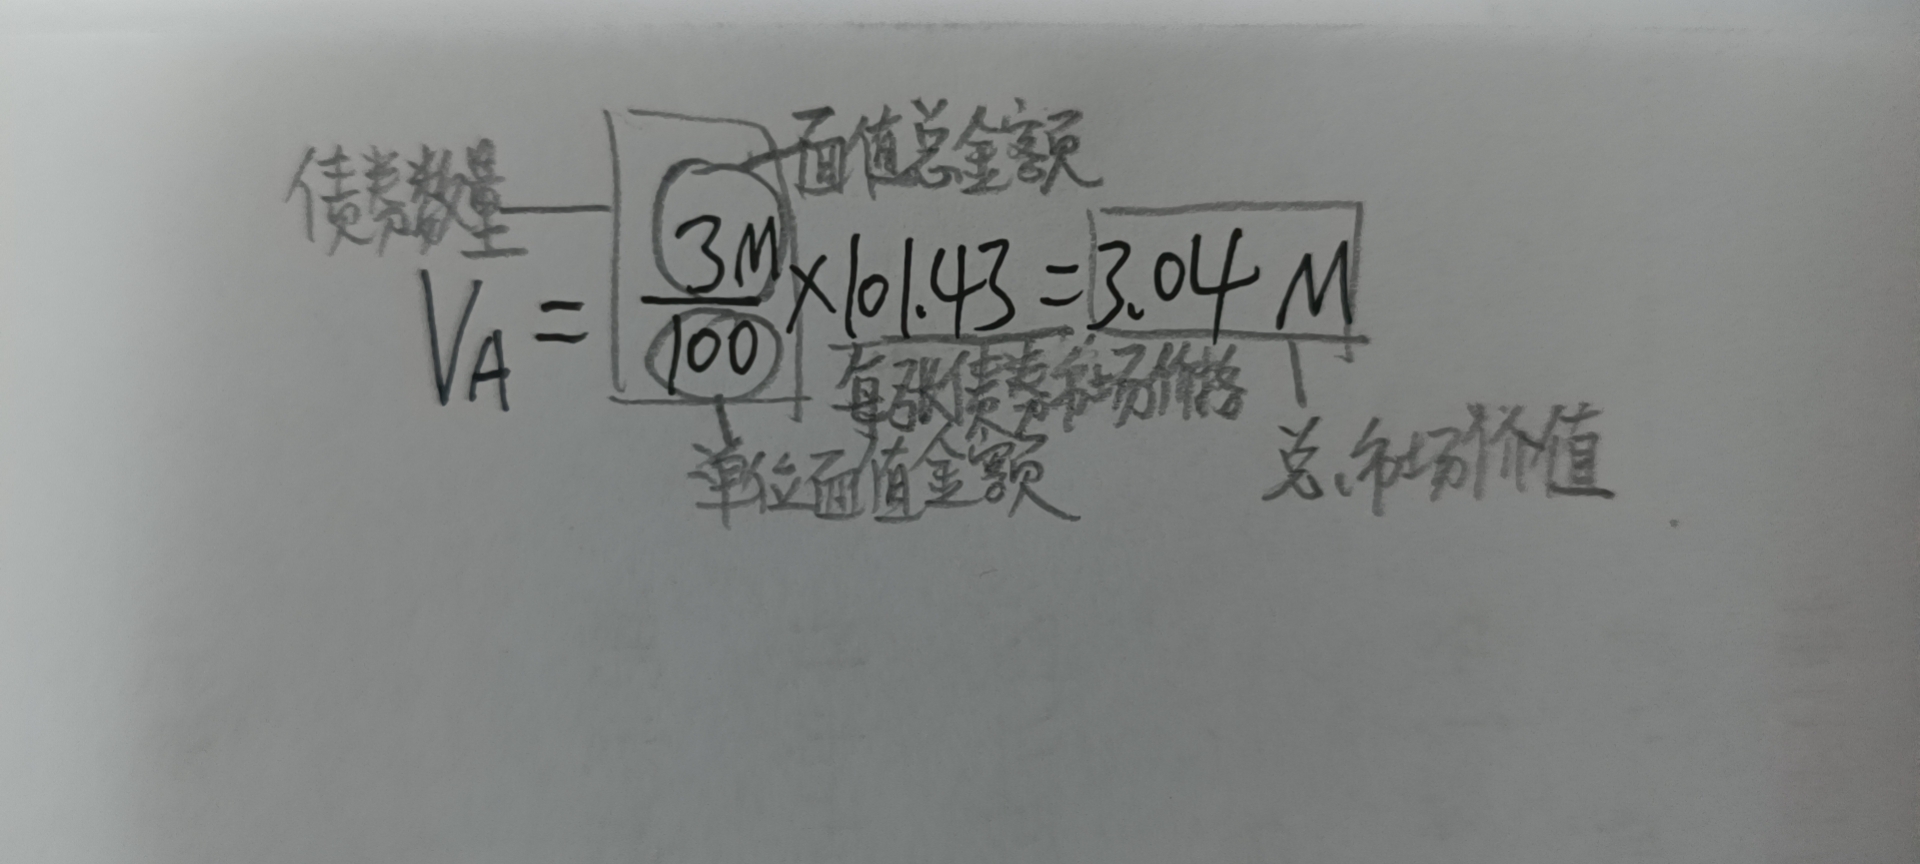 债券数量
面值总金额
V_A = 3M/100 × 101.43 = 3.04 M
每张债券市场价格
单位面值金额
总市场价值